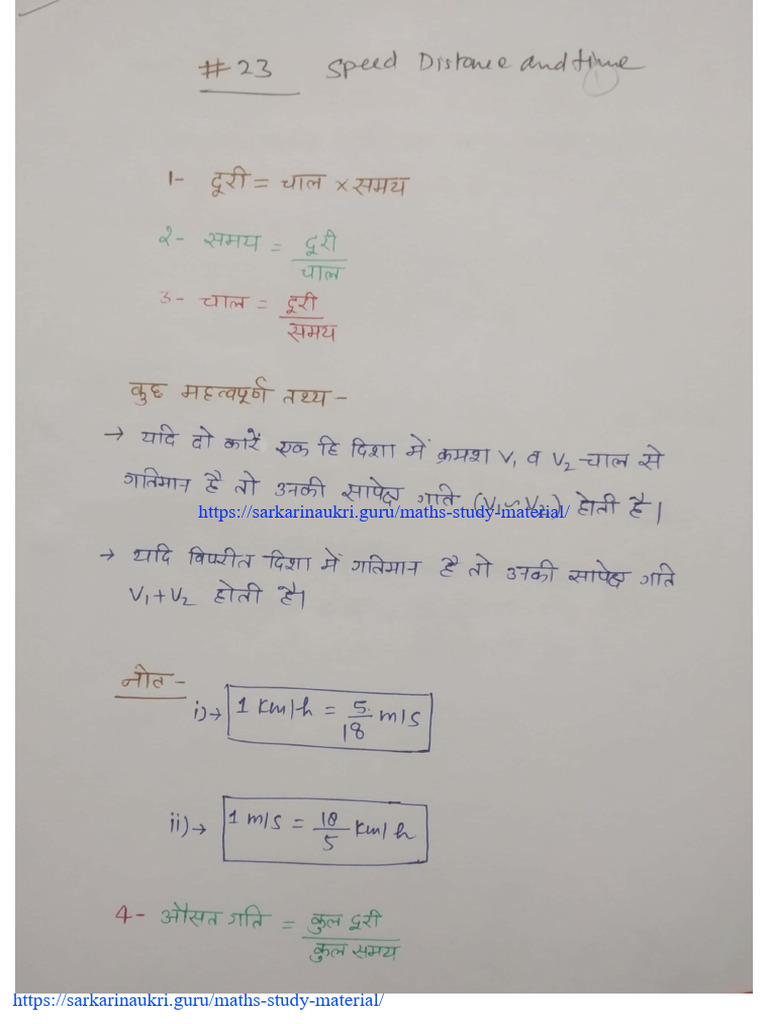 #23 Speed Distance and time
1- दूरी = चाल × समय
2- समय = दूरी
चाल
3- चाल = दूरी
समय
कुछ महत्वपूर्ण तथ्य -
→ यदि दो कारें एक हि दिशा में क्रमश V₁ व V₂ - चाल से
गतिमान है तो उनकी सापेक्ष गति (V₁ ~ V₂) होती है।
https://sarkarinaukri.guru/maths-study-material/
→ यदि विपरीत दिशा में गतिमान है तो उनकी सापेक्ष गति
V₁+V₂ होती है।
नोट -
i)→ 1 Km/h = 5/18 m/s
ii)→ 1 m/s = 18/5 Km/h
4- औसत गति = कुल दूरी
कुल समय
https://sarkarinaukri.guru/maths-study-material/